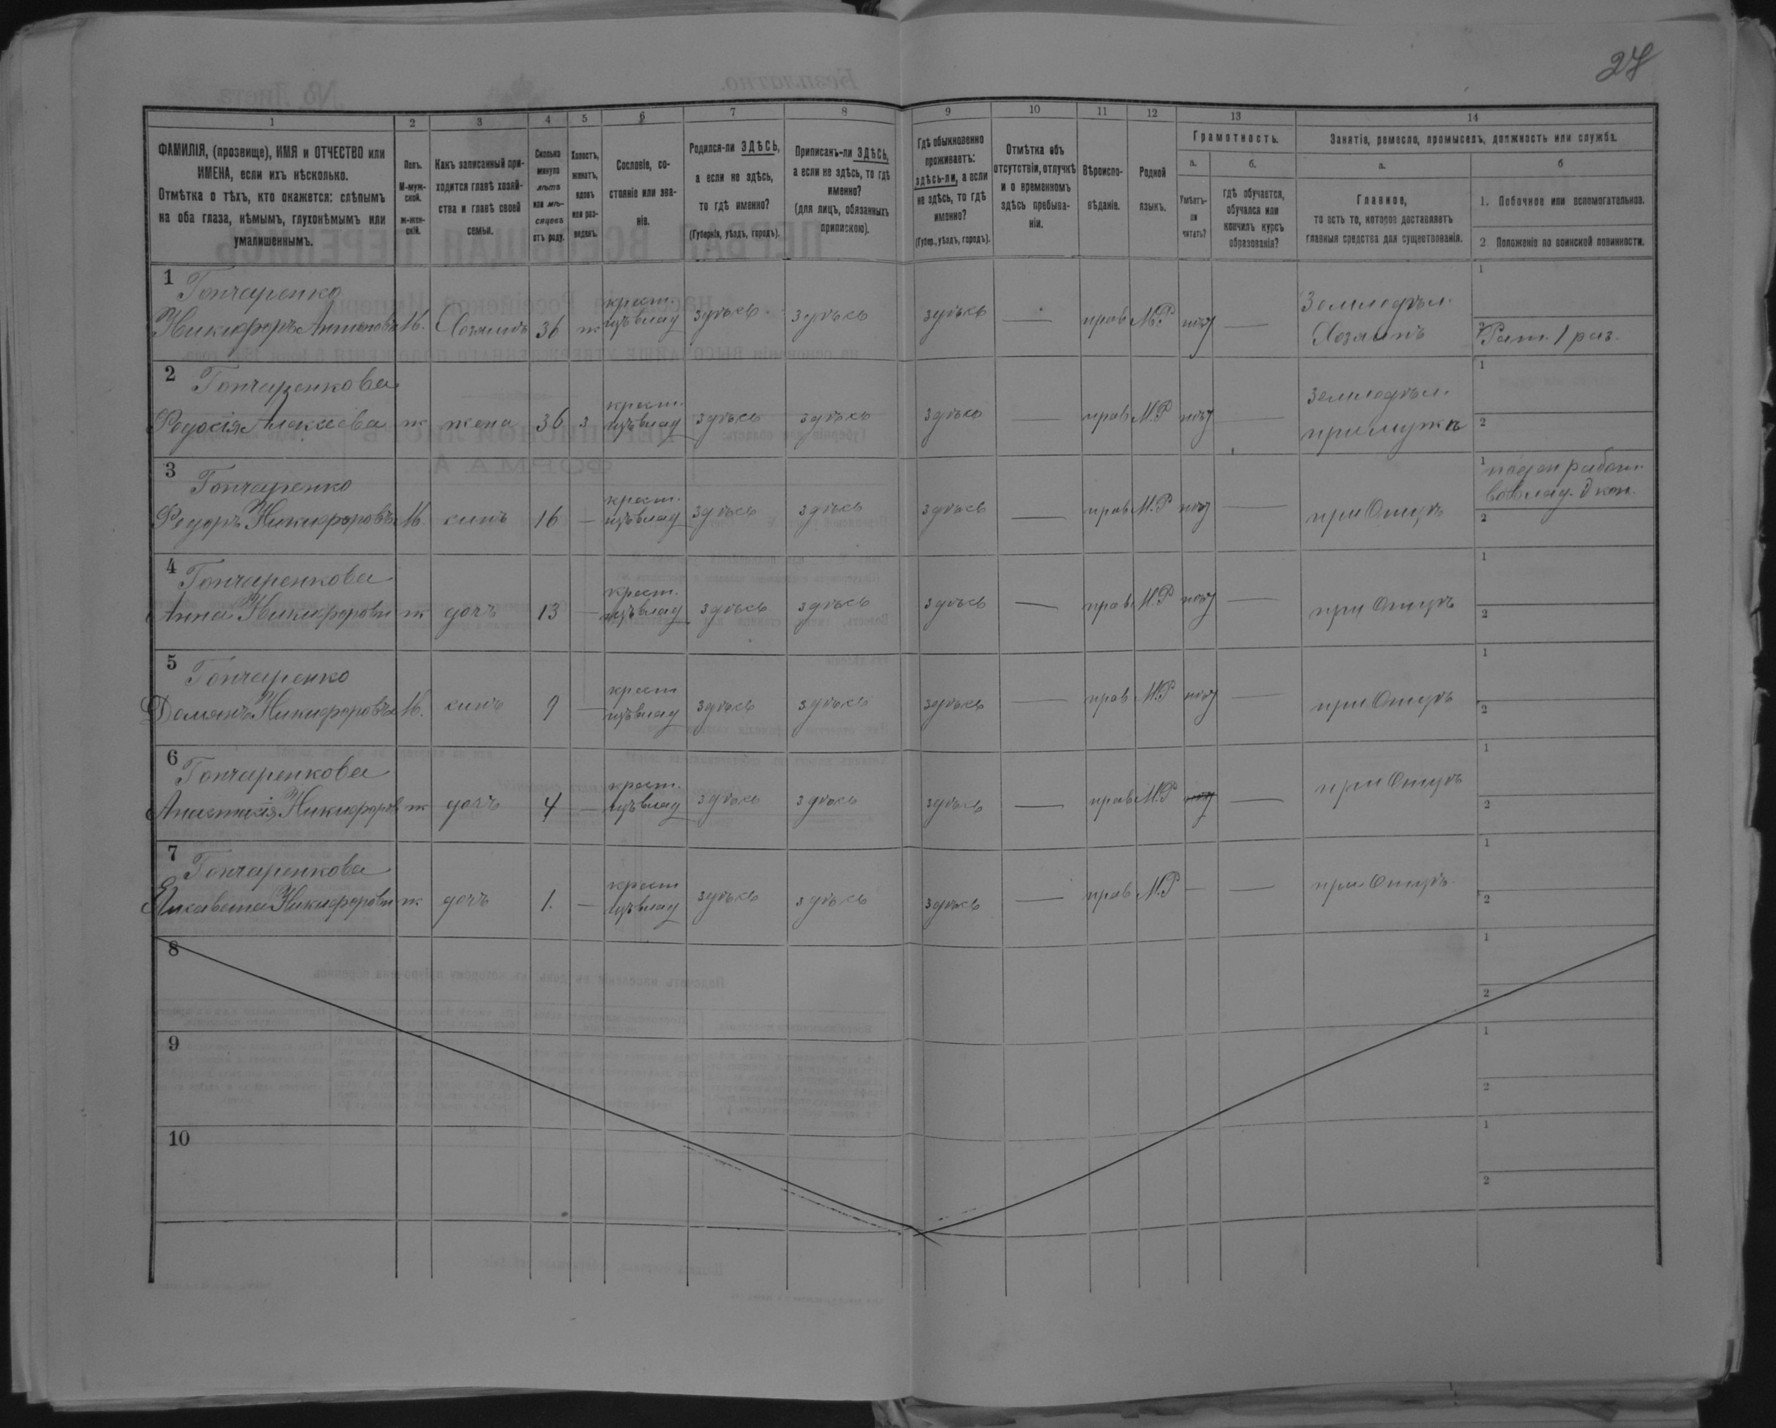 27
1 2 3 4 5 6 7 8 9 10 11 12 13 14
ФАМИЛІЯ, (прозвище), ИМЯ и ОТЧЕСТВО или ИМЕНА, если ихъ нѣсколько.
Отмѣтка о тѣхъ, кто окажется: слѣпымъ на оба глаза, нѣмымъ, глухонѣмымъ или умалишеннымъ.
Полъ. М-мужской. ж-женскій.
Какъ записанный приходится главѣ хозяйства и главѣ своей семьи.
Сколько минуло лѣтъ или мѣсяцевъ отъ роду.
Холостъ, женатъ, вдовъ или разведенъ.
Сословіе, состояніе или званіе.
Родился-ли ЗДѢСЬ, а если не здѣсь, то гдѣ именно?
(Губернія, уѣздъ, городъ).
Приписанъ-ли ЗДѢСЬ, а если не здѣсь, то гдѣ именно?
(для лицъ, обязанныхъ припискою).
Гдѣ обыкновенно проживаетъ: здѣсь-ли, а если не здѣсь, то гдѣ именно?
(Губер., уѣздъ, городъ).
Отмѣтка объ отсутствіи, отлучкѣ и о временномъ здѣсь пребываніи.
Вѣроисповѣданіе.
Родной языкъ.
Грамотность.
а. Умѣетъ-ли читать?
б. Гдѣ обучается, обучался или кончилъ курсъ образованія?
Занятіе, ремесло, промыселъ, должность или служба.
а. Главное, то есть то, которое доставляетъ главныя средства для существованія.
б
1. Побочное или вспомогательное.
2. Положеніе по воинской повинности.
1 Гончаренко крест. Земледѣл. 1
Никифоръ Антоновъ М. Хозяинъ 36 ж здѣсь здѣсь здѣсь — прав М.Р — Хозяинъ 2 Рат. 1 раз.
2 Гончаренкова крест. земледѣл. 1
Федосія Алексѣева ж жена 36 з здѣсь здѣсь здѣсь — прав М.Р — при мужѣ 2
3 Гончаренко крест. 1
Федоръ Никифоровъ М. синъ 16 — здѣсь здѣсь здѣсь — прав М.Р — при Отцѣ 2
4 Гончаренкова крест. 1
Анна Никифорови ж дочъ 13 — здѣсь здѣсь здѣсь — прав М.Р — при Отцѣ 2
5 Гончаренко крест 1
Демянъ Никифоровъ М. синъ 9 — здѣсь здѣсь здѣсь — прав М.Р — при Отцѣ 2
6 Гончаренкова крест. 1
Анастасія Никифоров ж дочъ 4 — здѣсь здѣсь здѣсь — прав М.Р — при Отцѣ 2
7 Гончаренкова крест 1
Елисавета Никифорови ж дочъ 1. — здѣсь здѣсь здѣсь — прав М.Р — — при Отцѣ 2
8 1
2
9 1
2
10 1
2